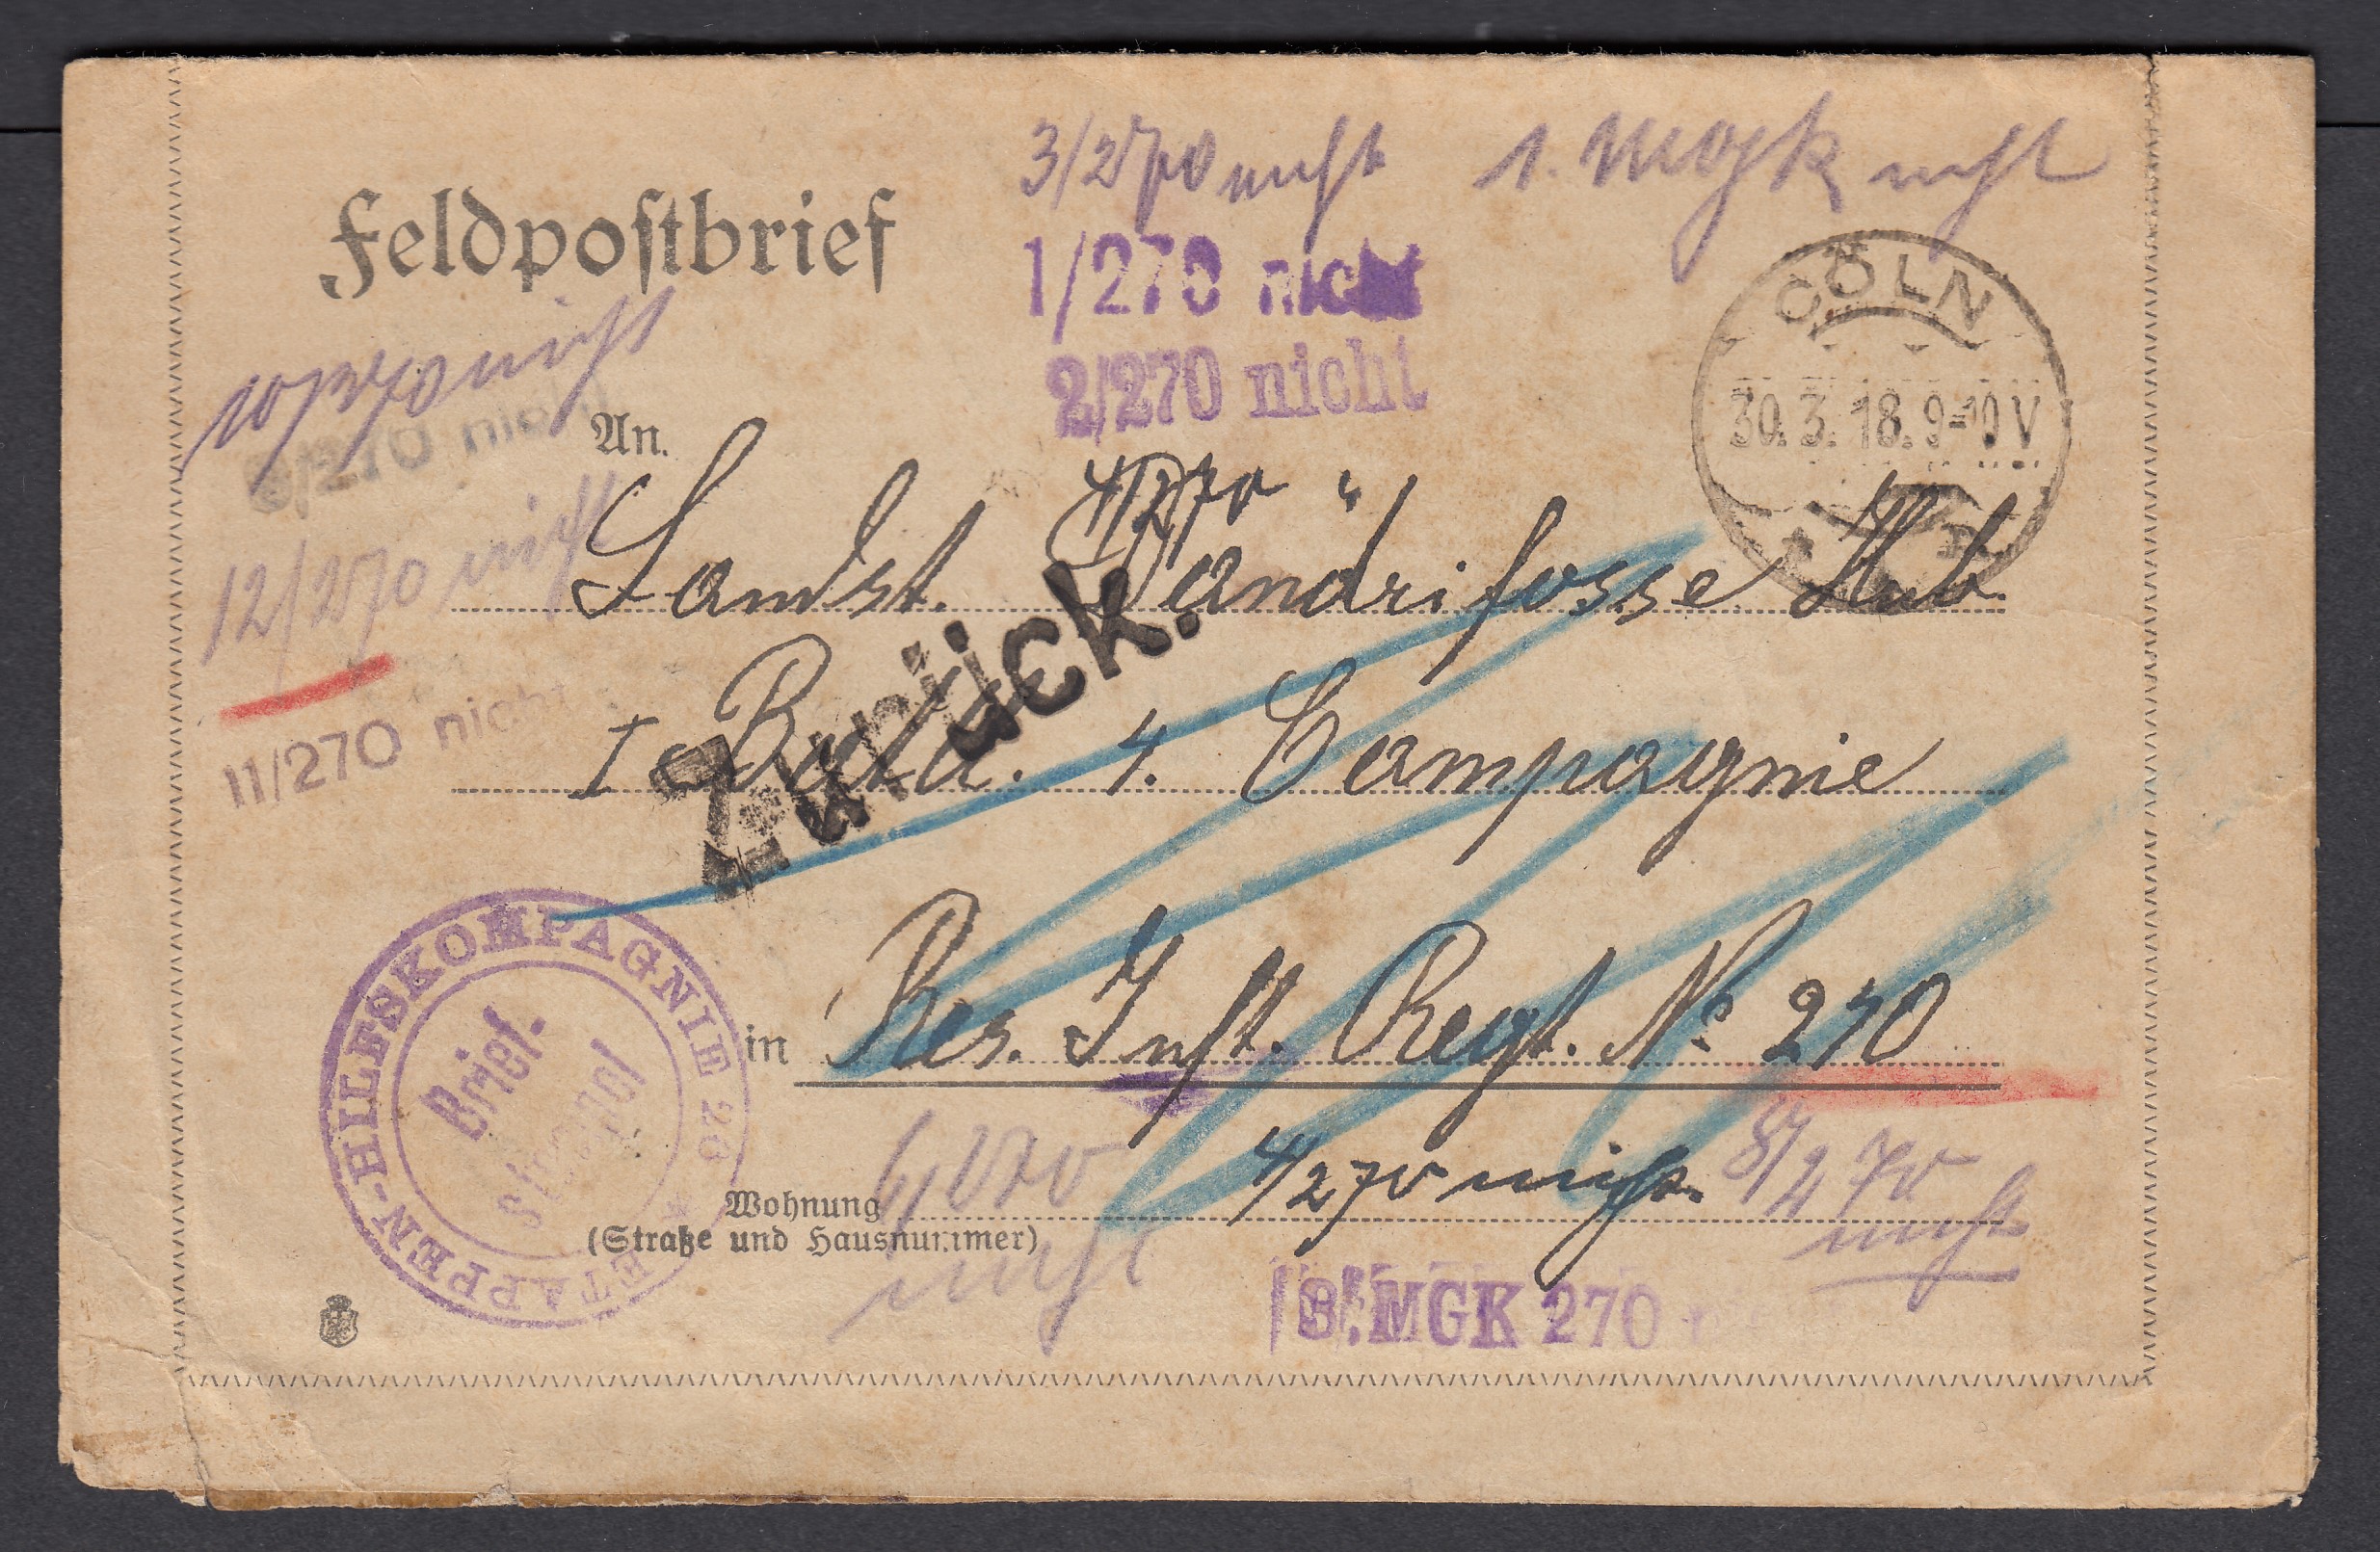 3/270 nicht
1. MGK nicht
Feldpostbrief
1/270 nicht
CÖLN
30.3.18.9-10V
10/270 nicht
2/270 nicht
/270 nicht
An
4/270
12/270 nicht
Landst. Vandrifosse Hub.
Zurück.
I Batl. 4. Compagnie
11/270 nicht
ETAPPEN-HILFSKOMPAGNIE 26
Brief.
stempel
in Res. Inft. Regt. No 270
6/270
nicht
4/270 nicht.
8/270
nicht
Wohnung
(Straße und Hausnummer)
MGK 270